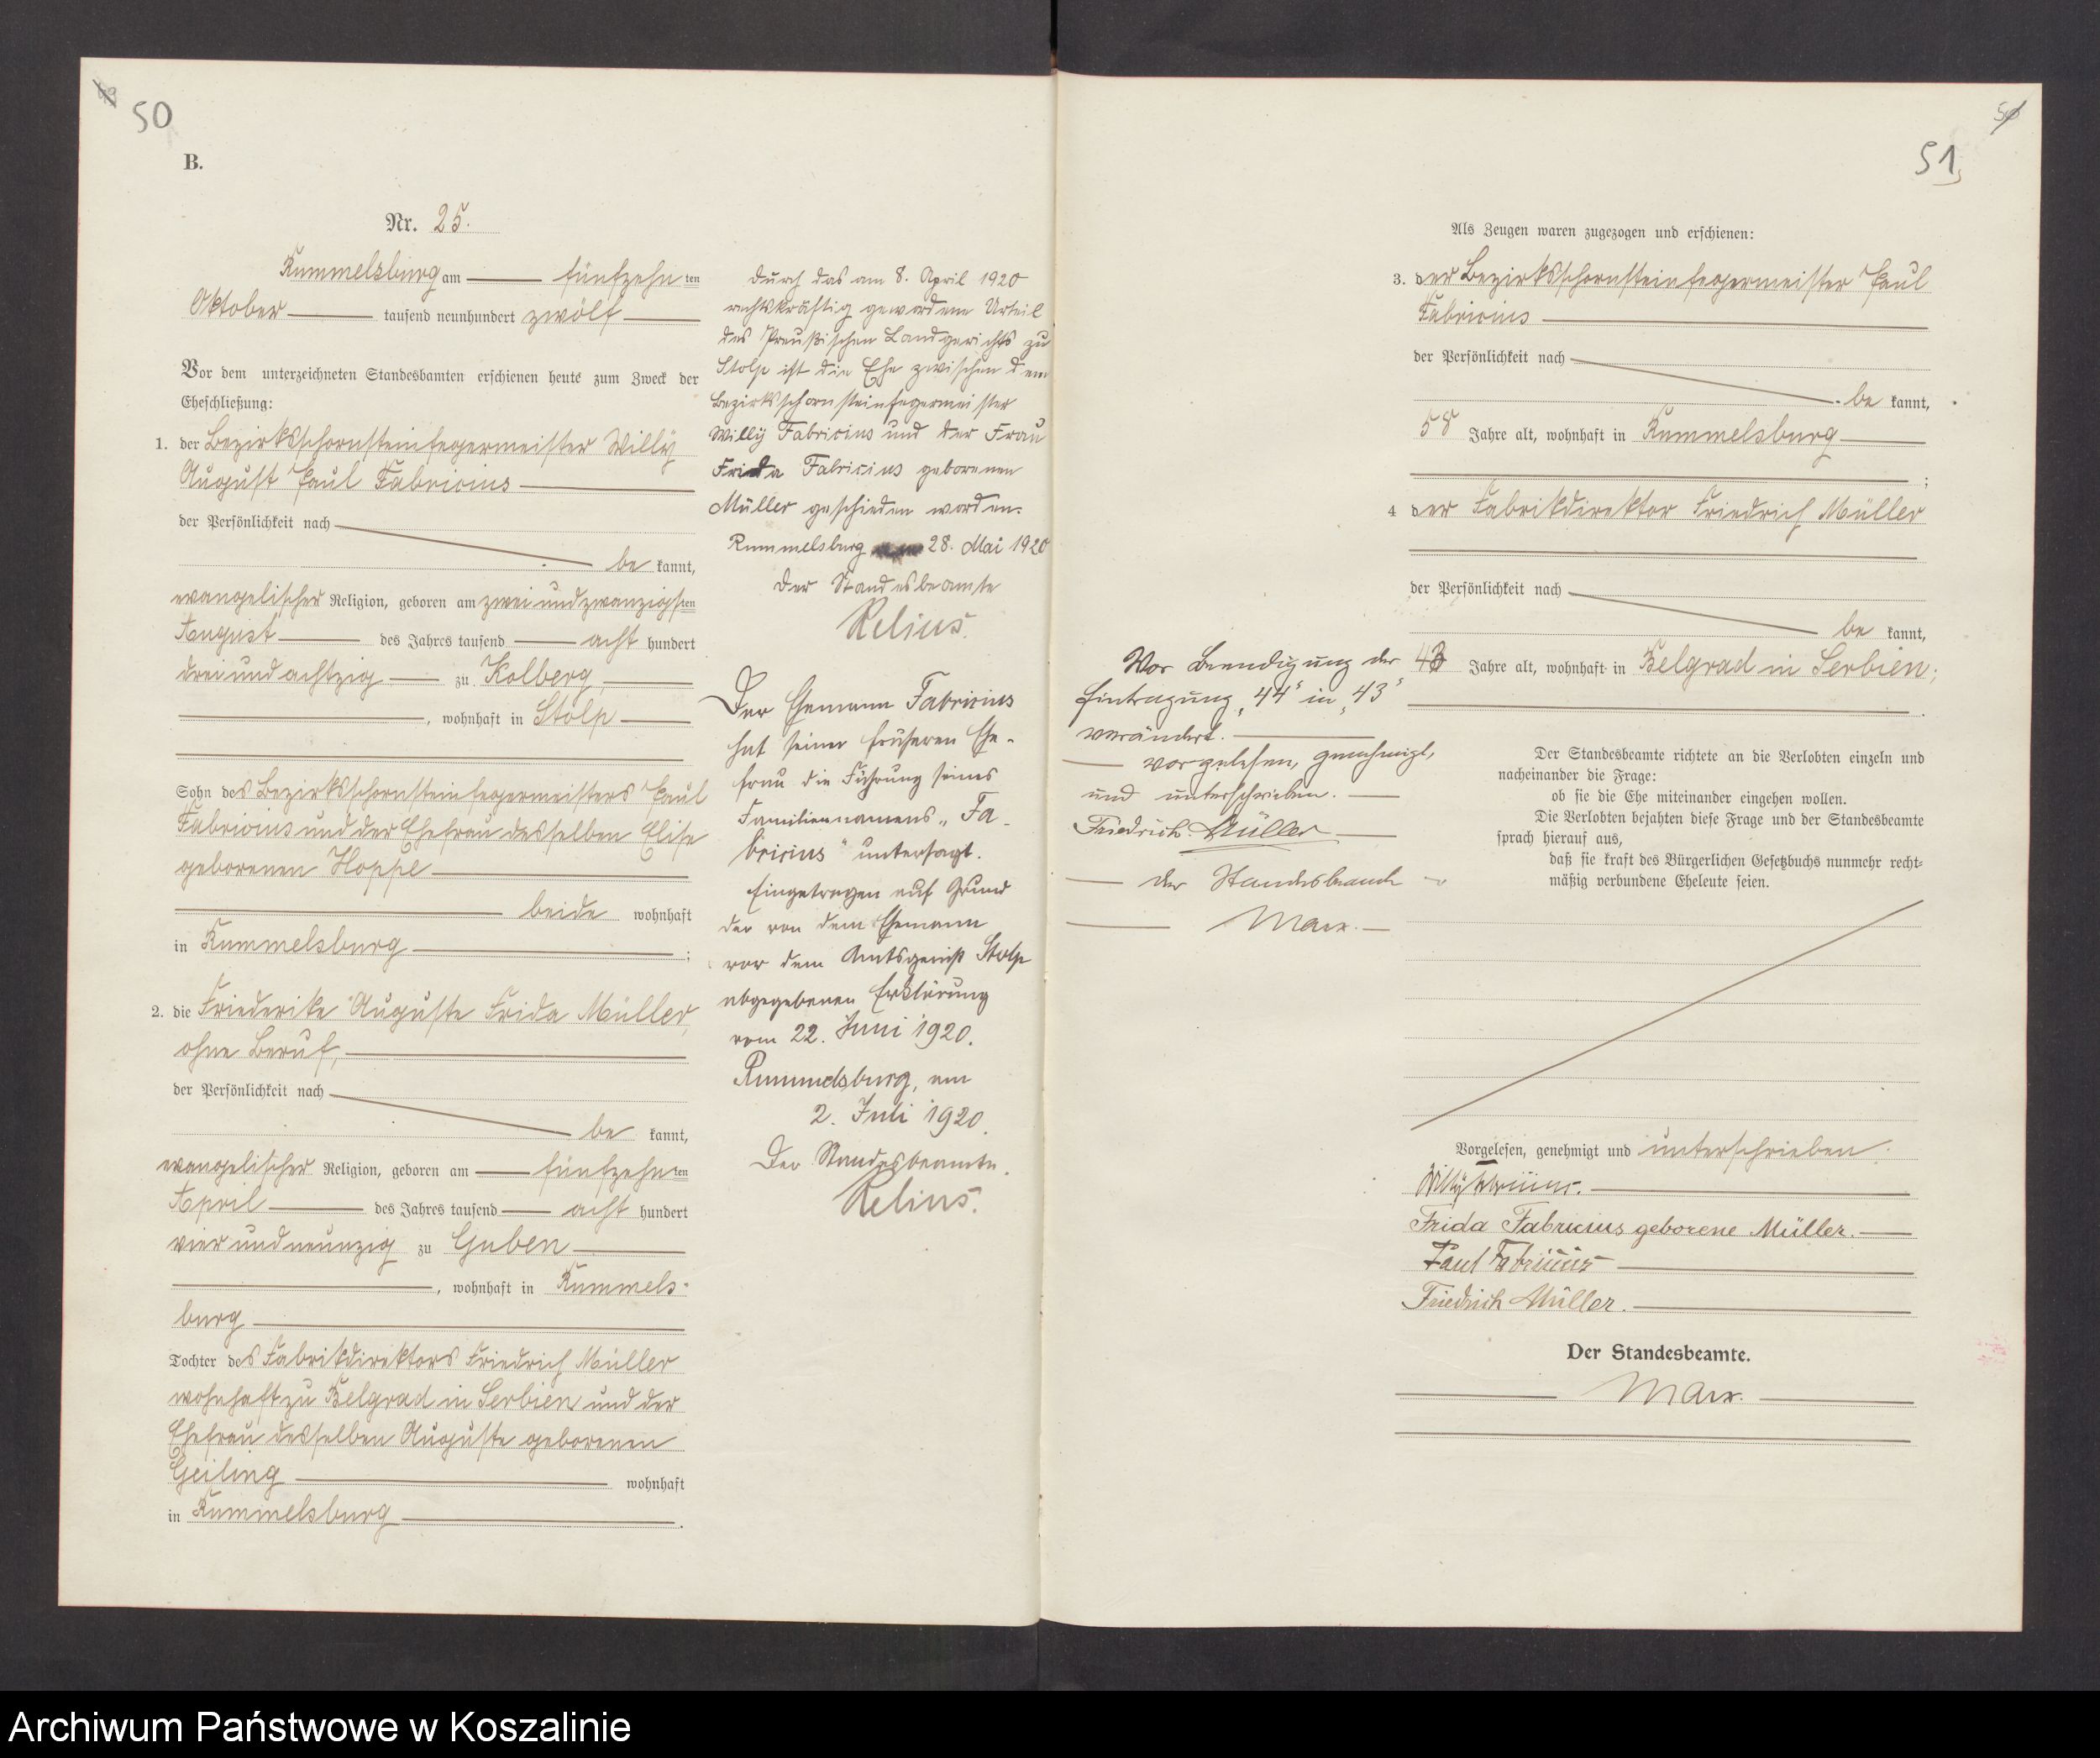 50
B.
Nr. 25.
Rummelsburg am fünfzehn ten
Oktober tausend neunhundert zwölf
Vor dem unterzeichneten Standesbamten erschienen heute zum Zweck der
Eheschließung:
1. der Bezirksschornsteinfegermeister Willy
August Paul Fabricius
der Persönlichkeit nach
be kannt,
evangelischer Religion, geboren am zweiundzwanzigsten
August des Jahres tausend acht hundert
dreiundachtzig zu Kolberg,
, wohnhaft in Stolp
Sohn des Bezirksschornsteinfegermeisters Paul
Fabricius und der Ehefrau desselben Elise
geborenen Hoppe
beide wohnhaft
in Rummelsburg ;
2. die Friederike Auguste Frida Müller,
ohne Beruf,
der Persönlichkeit nach
be kannt,
evangelischer Religion, geboren am fünfzehn ten
April des Jahres tausend acht hundert
vierundneunzig zu Guben
, wohnhaft in Rummels-
burg
Tochter des Fabrikdirektors Friedrich Müller
wohnhaft zu Belgrad in Serbien und der
Ehefrau desselben Auguste geborenen
Geiling wohnhaft
in Rummelsburg .
Durch das am 8. April 1920
rechtskräftig gewordene Urteil
des Preußischen Landgerichts zu
Stolp ist die Ehe zwischen dem
Bezirksschornsteinfegermeister
Willy Fabricius und der Frau
Frida Fabricius geborenen
Müller geschieden worden.
Rummelsburg 28. Mai 1920
Der Standesbeamte
Relius.
Der Ehemann Fabricius
hat seiner früheren Ehe-
frau die Führung seines
Familiennamens „Fa-
bricius“ untersagt.
Eingetragen auf Grund
der von dem Ehemann
vor dem Amtsgericht Stolp
abgegebenen Erklärung
vom 22. Juni 1920.
Rummelsburg, am
2. Juli 1920.
Der Standesbeamte.
Relius.
51
Als Zeugen waren zugezogen und erschienen:
3. der Bezirksschornsteinfegermeister Paul
Fabricius
der Persönlichkeit nach
be kannt,
58 Jahre alt, wohnhaft in Rummelsburg
;
4 der Fabrikdirektor Friedrich Müller
der Persönlichkeit nach
be kannt,
43 Jahre alt, wohnhaft in Belgrad in Serbien;
Vor Beendigung der
Eintragung „44“ in „43“
verändert.
vorgelesen, genehmigt,
und unterschrieben.
Friedrich Müller
der Standesbeamte
Marx.
Der Standesbeamte richtete an die Verlobten einzeln und
nacheinander die Frage:
ob sie die Ehe miteinander eingehen wollen.
Die Verlobten bejahten diese Frage und der Standesbeamte
sprach hierauf aus,
daß sie kraft des Bürgerlichen Gesetzbuchs nunmehr recht-
mäßig verbundene Eheleute seien.
Vorgelesen, genehmigt und unterschrieben.
Willy Fabricius.
Frida Fabricius geborene Müller.
Paul Fabricius
Friedrich Müller.
Der Standesbeamte.
Marx.
Archiwum Państwowe w Koszalinie